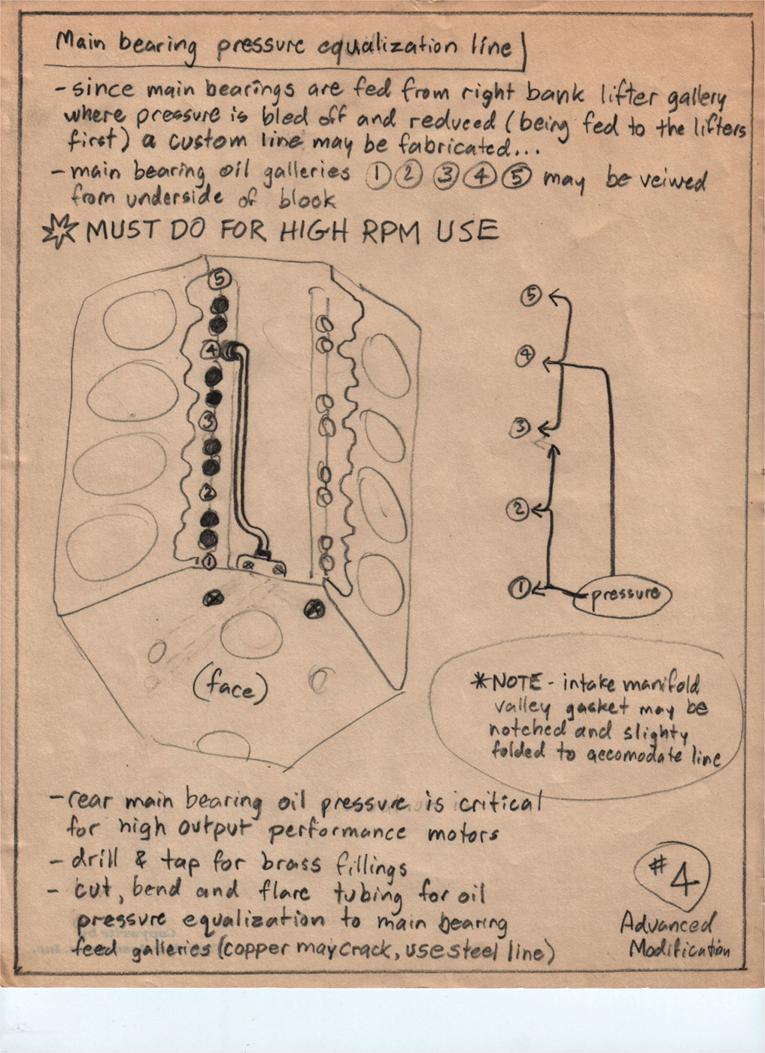 Main bearing pressure equalization line
- since main bearings are fed from right bank lifter gallery
where pressure is bled off and reduced (being fed to the lifters
first) a custom line may be fabricated...
- main bearing oil galleries ① ② ③ ④ ⑤ may be veiwed
from underside of block
MUST DO FOR HIGH RPM USE
⑤
④
③
②
①
(face)
⑤
④
③
②
①
pressure
*NOTE - intake manifold
valley gasket may be
notched and slighty
folded to accomodate line
- rear main bearing oil pressure is critical
for high output performance motors
- drill & tap for brass fillings
- cut, bend and flare tubing for oil
pressure equalization to main bearing
feed galleries (copper may crack, use steel line)
#4
Advanced
Modification